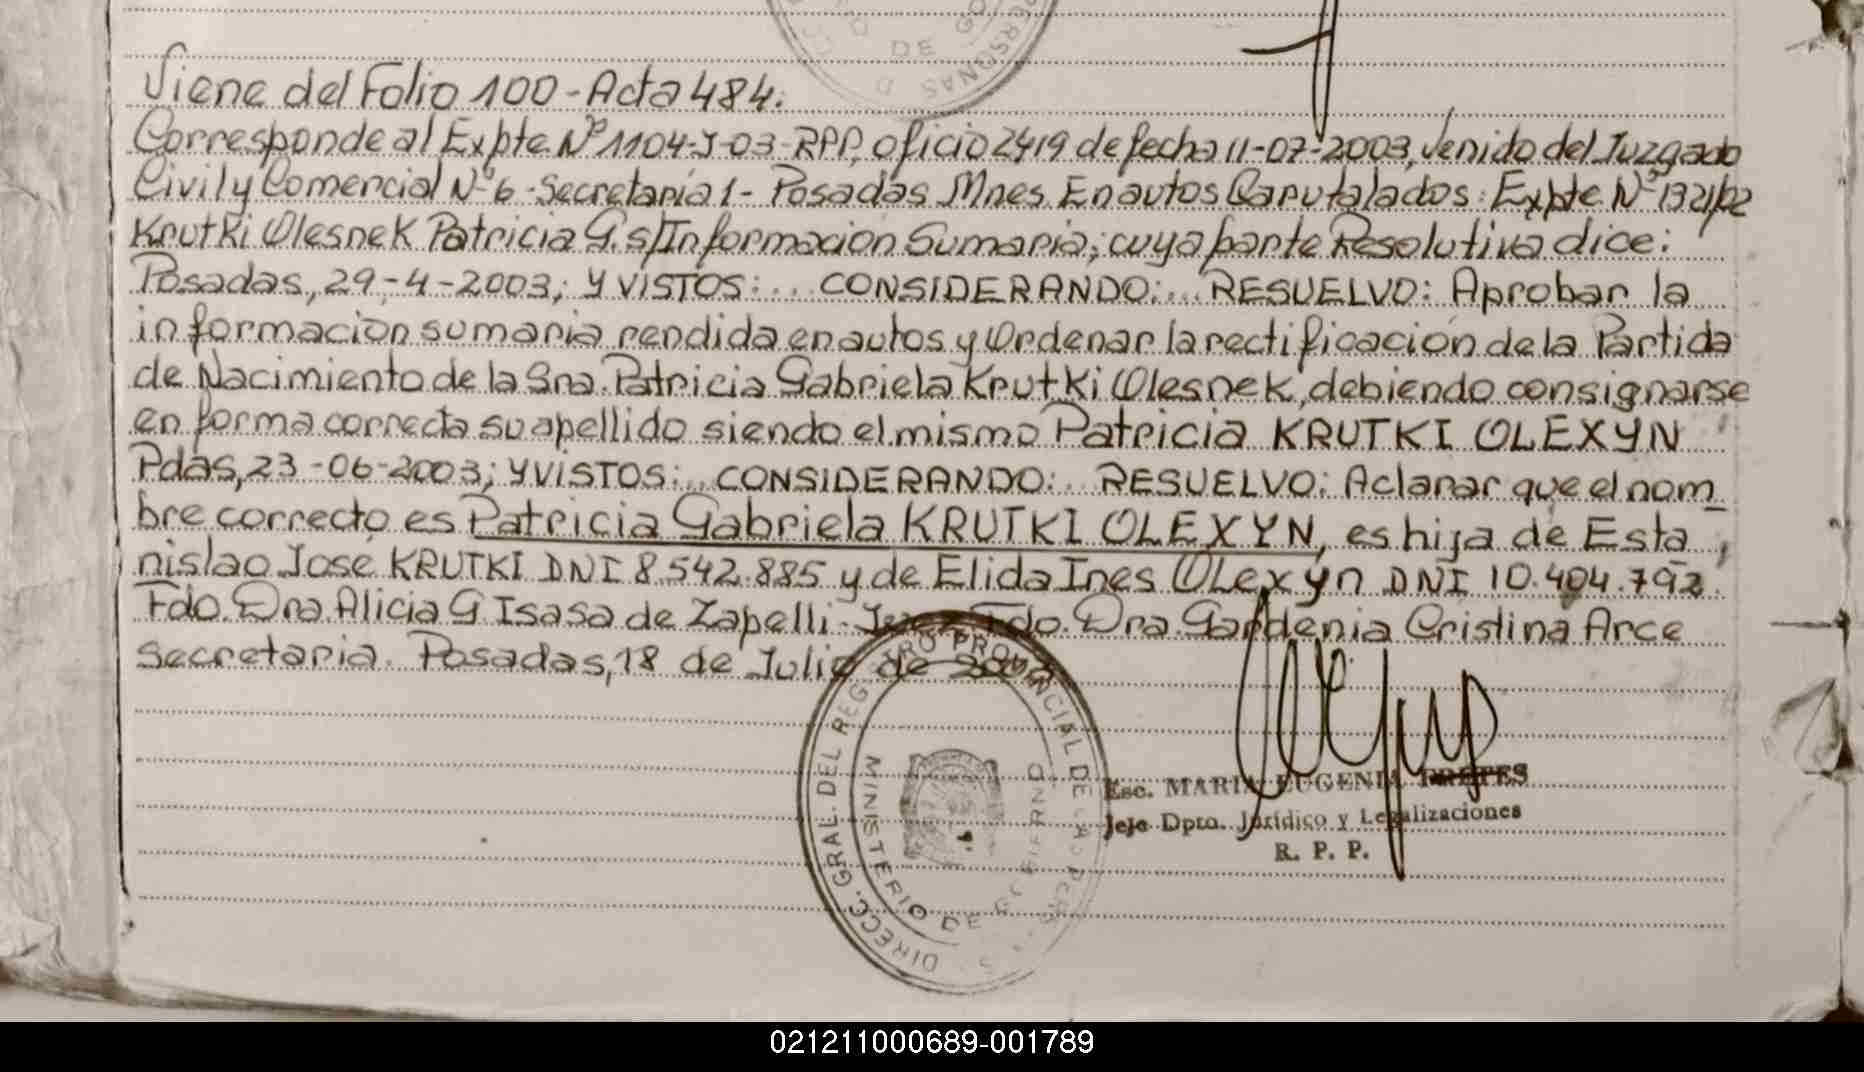 PERSONAS
D DE GO
Viene del Folio 100 - Acta 484.
Corresponde al Expte Nº 1104-J-03-RPP, oficio 2419 de fecha 11-07-2003, venido del Juzgado
Civil y Comercial Nº 6 - Secretaría 1 - Posadas Mnes. En autos Carutalados: Expte Nº 1321/02
Krutki Olesnek Patricia G. s/Informacion Sumaria; cuya parte Resolutiva dice:
Posadas, 29-4-2003; Y VISTOS:... CONSIDERANDO:... RESUELVO: Aprobar la
informacion sumaria rendida en autos y Ordenar la rectificación de la Partida
de Nacimiento de la Sra. Patricia Gabriela Krutki Olesnek, debiendo consignarse
en forma correcta su apellido siendo el mismo Patricia KRUTKI OLEXYN
Pdas, 23-06-2003; Y VISTOS:... CONSIDERANDO:.. RESUELVO: Aclarar que el nom_
bre correcto es Patricia Gabriela KRUTKI OLEXYN, es hija de Esta
nislao José KRUTKI DNI 8.542.885 y de Elida Ines Olexyn DNI 10.404.792.
Fdo. Dra. Alicia G Isasa de Zapelli - Juez Fdo. Dra. Gardenia Cristina Arce
Secretaria. Posadas, 18 de Julio de 2003
DIRECC. GRAL. DEL REGISTRO PROVINCIAL DE LAS PERS
MINISTERIO DE GOBIERNO
Esc. MARIA EUGENIA PRETES
Jefe Dpto. Jurídico y Legalizaciones
R. P. P.
021211000689-001789